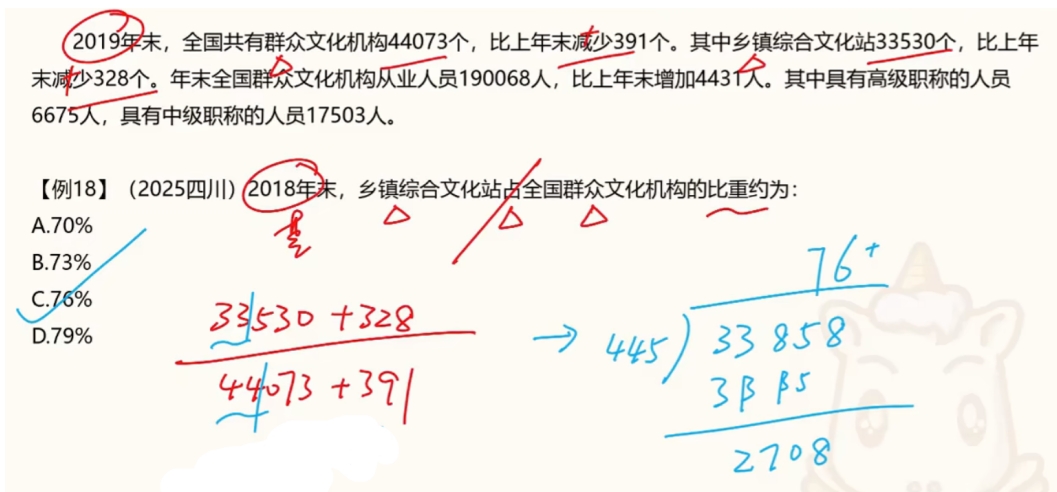 2019年末，全国共有群众文化机构44073个，比上年末减少391个。其中乡镇综合文化站33530个，比上年
末减少328个。年末全国群众文化机构从业人员190068人，比上年末增加4431人。其中具有高级职称的人员
6675人，具有中级职称的人员17503人。
【例18】（2025四川）2018年末，乡镇综合文化站占全国群众文化机构的比重约为：
A.70%
B.73%
C.76%
D.79%
33530 +328
44073 +391
→ 445
76+
33858
2708